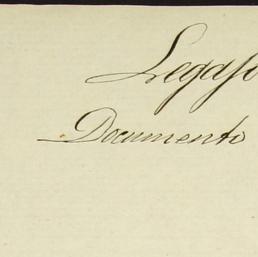 Legajo
Documento